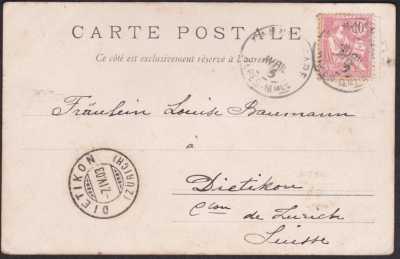 CARTE POSTALE
Ce côté est exclusivement réservé à l'adresse
10
AVRIL
5
Fräulein Louise Baumann
à
Dietikon
Cton de Zurich
Suisse
DIETIKON
(ZÜRICH)
-7.IV.03